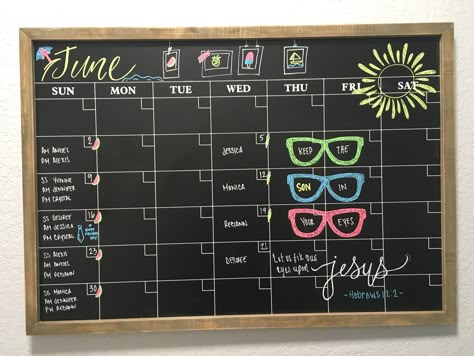 June
SUN MON TUE WED THU FRI SAT
2 5
AM ANGEL
PM ALEXIS
JESSICA
KEEP THE
9 12
SS YVONNE
AM JENNIFER
PM CRYSTAL
MONICA
SON IN
16 19
SS DESIREE
AM JESSICA
PM CRYSTAL
HAPPY
FATHER'S
DAY
REDAWN
YOUR EYES
23
SS ALEXIS
AM ANGEL
PM REDAWN
DESIREE
Let us fix our
eyes upon
jesus
30
SS MONICA
AM JENNIFER
PM REDAWN
-Hebrews 12:2-